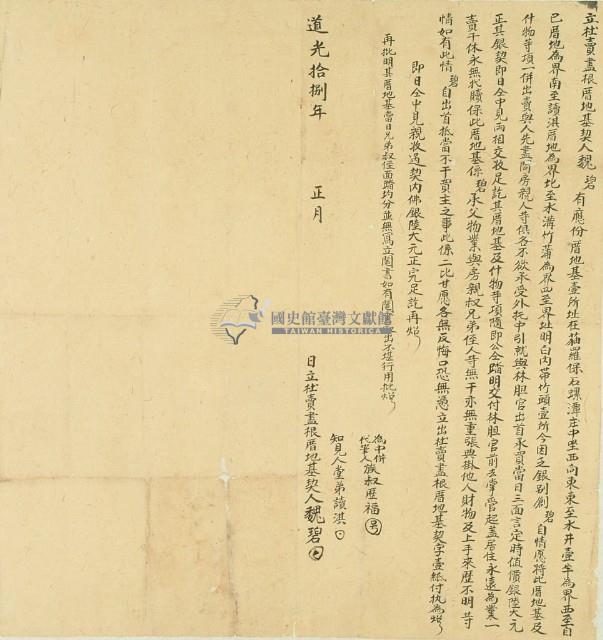 立杜賣盡根厝地基契人魏碧有應份厝地基壹所址在貓羅保石螺潭庄中坐西向東東至水井壹半為界西至自
己厝地為界南至讀淇厝地為界北至水溝竹蒲為界四至界址明白內帶竹頭壹所今因乏銀別創碧自情愿將此厝地基及
什物等項一併出賣與人先盡問房親人等俱各不欲承受外托中引就與林胆官出首承買當日三面言定時值價銀陸大元
正其銀契即日仝中見兩相交收足訖其厝地基及什物等項隨即公仝踏明交付林胆官前去掌管起蓋居住永遠為業一
賣千休永無代贖保此厝地基係碧承父物業與房親叔兄弟侄人等無干亦無重張典掛他人財物及上手來歷不明等
情如有此情碧自出首抵當不干買主之事此係二比甘愿各無反悔口恐無憑立出杜賣盡根厝地基契字壹紙付执為炤
即日仝中見親收過契內佛銀陸大元正完足訖再炤
再批明其厝地基當日兄弟叔侄面踏均分並無寫立鬮書如有鬮出不堪行用批炤
為中併
代筆人族叔歷福
知見人堂弟讀淇
道光拾捌年 正月 日立杜賣盡根厝地基契人魏碧
國史館臺灣文獻館
TAIWAN HISTORICA